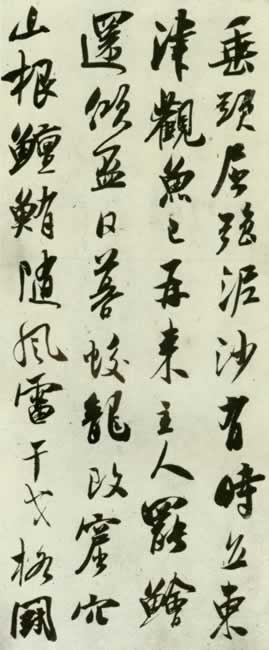 垂頭屈強泥沙有時立東
津觀魚已再来主人罷鱠
還傾盃日暮蛟龍改窟穴
山根鱣鮪随風雷干戈格鬭